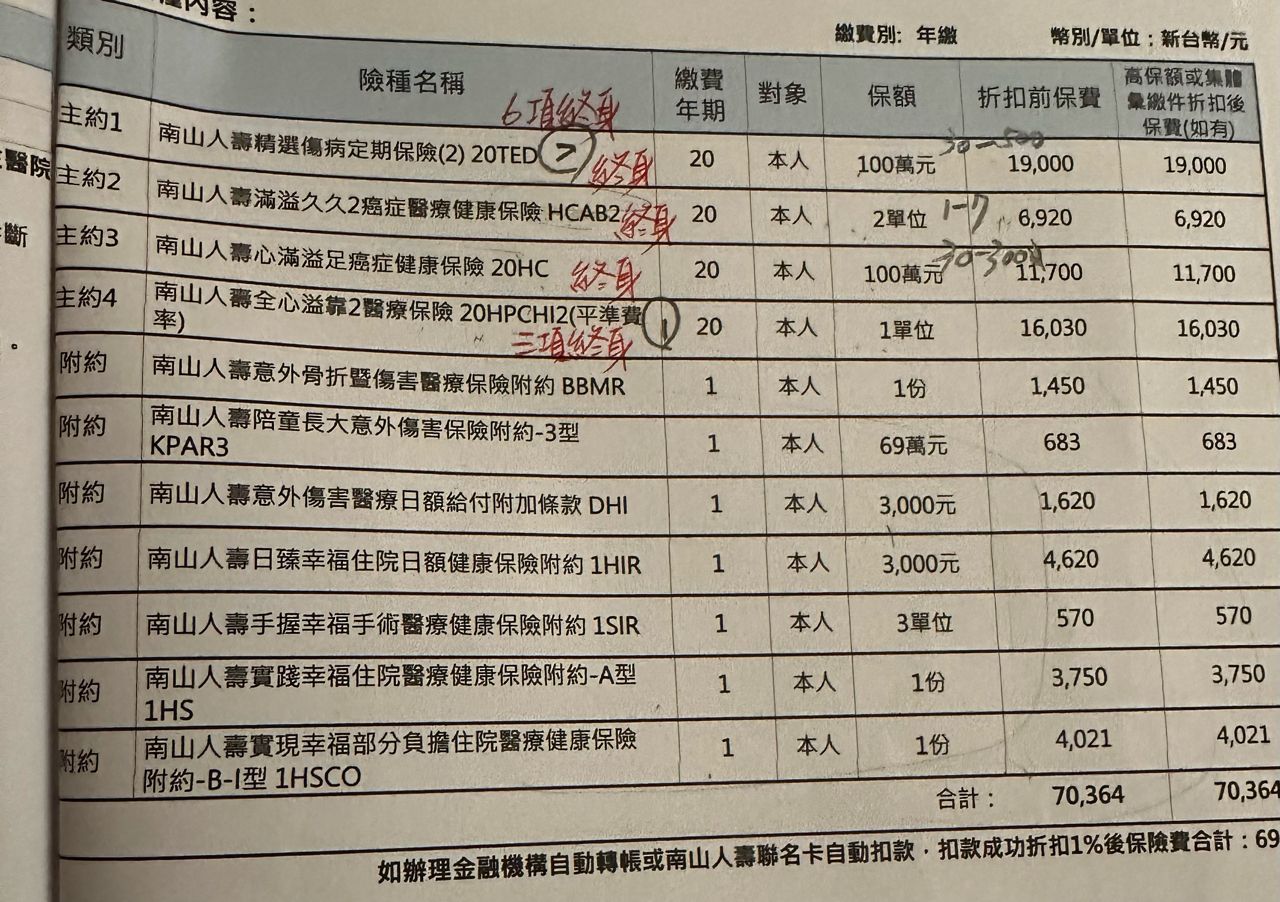 內容：
繳費別: 年繳 幣別/單位：新台幣/元
類別 險種名稱 繳費年期 對象 保額 折扣前保費 高保額或集體彙繳件折扣後保費(如有)
6項終身
30-500
主約1 南山人壽精選傷病定期保險(2) 20TED 20 本人 100萬元 19,000 19,000
終身
主約2 南山人壽滿溢久久2癌症醫療健康保險 HCAB2 20 本人 2單位 6,920 6,920
終身 1-7
主約3 南山人壽心滿溢足癌症健康保險 20HC 20 本人 100萬元 11,700 11,700
終身
主約4 南山人壽全心溢靠2醫療保險 20HPCHI2(平準費率) 20 本人 1單位 16,030 16,030
三項終身
附約 南山人壽意外骨折暨傷害醫療保險附約 BBMR 1 本人 1份 1,450 1,450
附約 南山人壽陪童長大意外傷害保險附約-3型 KPAR3 1 本人 69萬元 683 683
附約 南山人壽意外傷害醫療日額給付附加條款 DHI 1 本人 3,000元 1,620 1,620
附約 南山人壽日臻幸福住院日額健康保險附約 1HIR 1 本人 3,000元 4,620 4,620
附約 南山人壽手握幸福手術醫療健康保險附約 1SIR 1 本人 3單位 570 570
附約 南山人壽實踐幸福住院醫療健康保險附約-A型 1HS 1 本人 1份 3,750 3,750
附約 南山人壽實現幸福部分負擔住院醫療健康保險附約-B-I型 1HSCO 1 本人 1份 4,021 4,021
合計： 70,364 70,364
如辦理金融機構自動轉帳或南山人壽聯名卡自動扣款，扣款成功折扣1%後保險費合計：69
醫院
斷
。